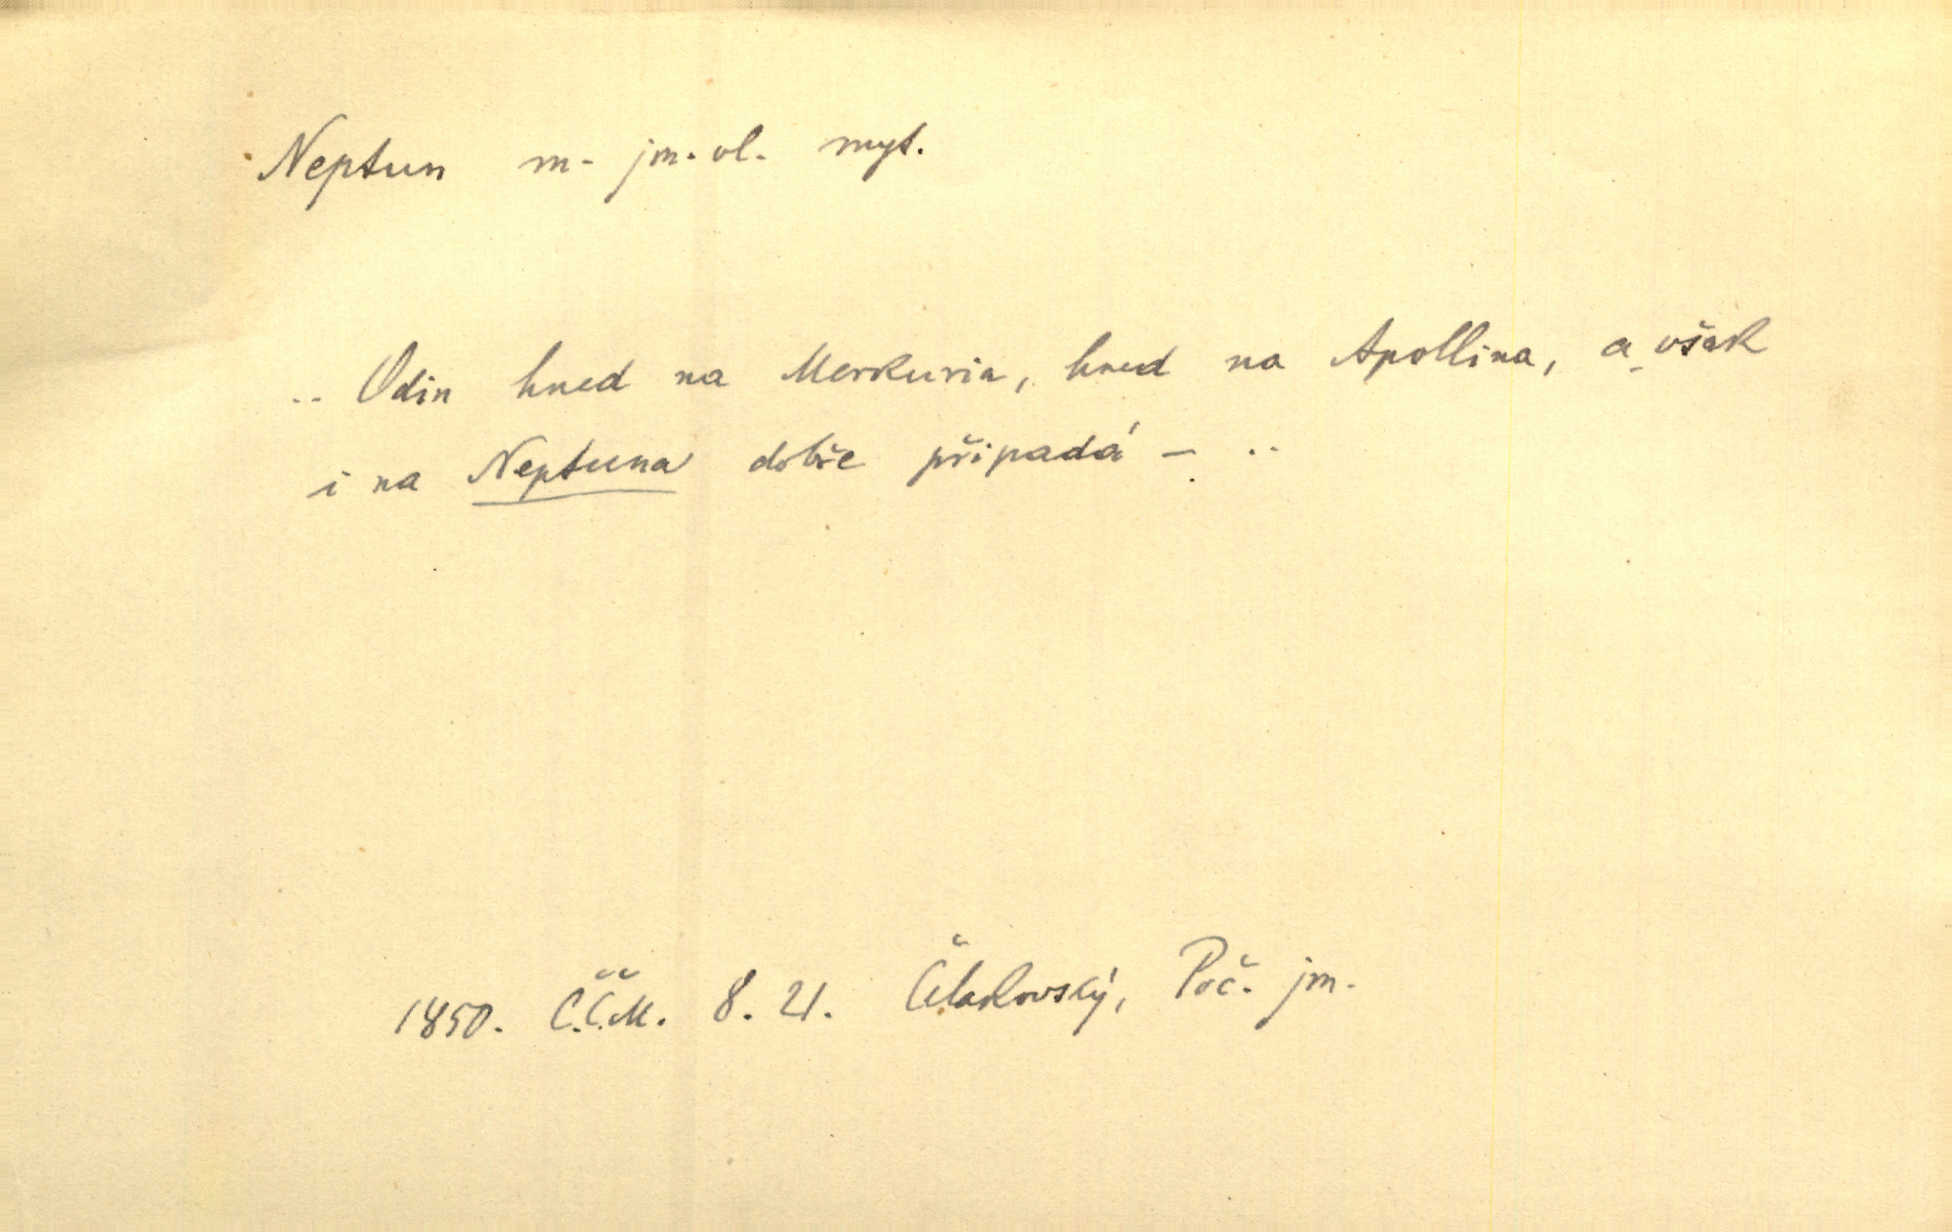 Neptun m. jm. vl. myt.
.. Odin hned na Merkuria, hned na Apollina, a však
i na Neptuna dobře připadá – ..
1850. Č.Č.M. 8. 21. Čelakovský, Poč. jm.